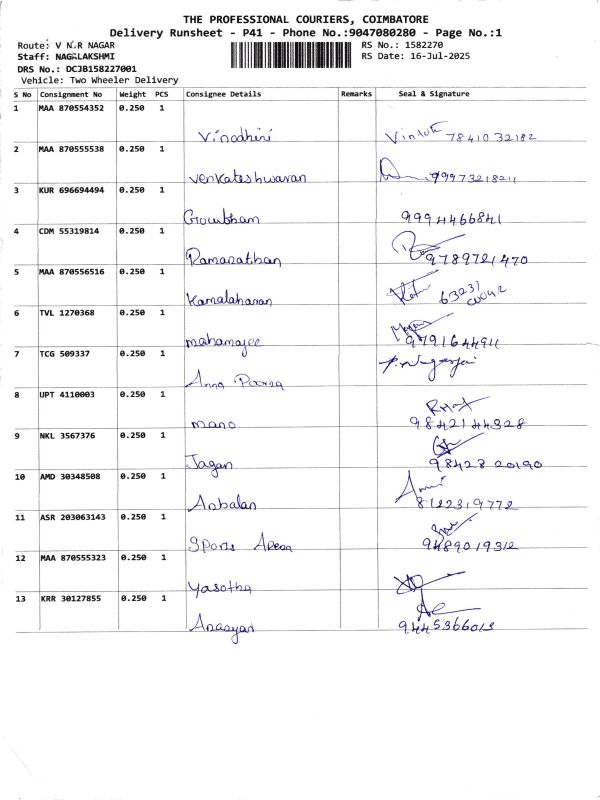 THE PROFESSIONAL COURIERS, COIMBATORE
Delivery Runsheet - P41 - Phone No.:9047080280 - Page No.:1
Route: V N R NAGAR RS No.: 1582270
Staff: NAGALAKSHMI RS Date: 16-Jul-2025
DRS No.: DCJB158227001
Vehicle: Two Wheeler Delivery
S No Consignment No Weight PCS Consignee Details Remarks Seal & Signature
1 MAA 870554352 0.250 1
Vinodhini 7841032182
2 MAA 870555538 0.250 1
Venkateshwaran 9997321821
3 KUR 696694494 0.250 1
Gowtham 9994466841
4 CDM 55319814 0.250 1
Ramanathan 9789721470
5 MAA 870556516 0.250 1
Kamalaharan 63231
6 TVL 1270368 0.250 1
mahamajee 9791644911
7 TCG 509337 0.250 1
Anna Poorna
8 UPT 4110003 0.250 1
mano 9842144328
9 NKL 3567376 0.250 1
Jagan 98428 20190
10 AMD 30348508 0.250 1
Anbalan 8122319772
11 ASR 203063143 0.250 1
Sports Arena 9489019312
12 MAA 870555323 0.250 1
Yasotha
13 KRR 30127855 0.250 1
9445366013